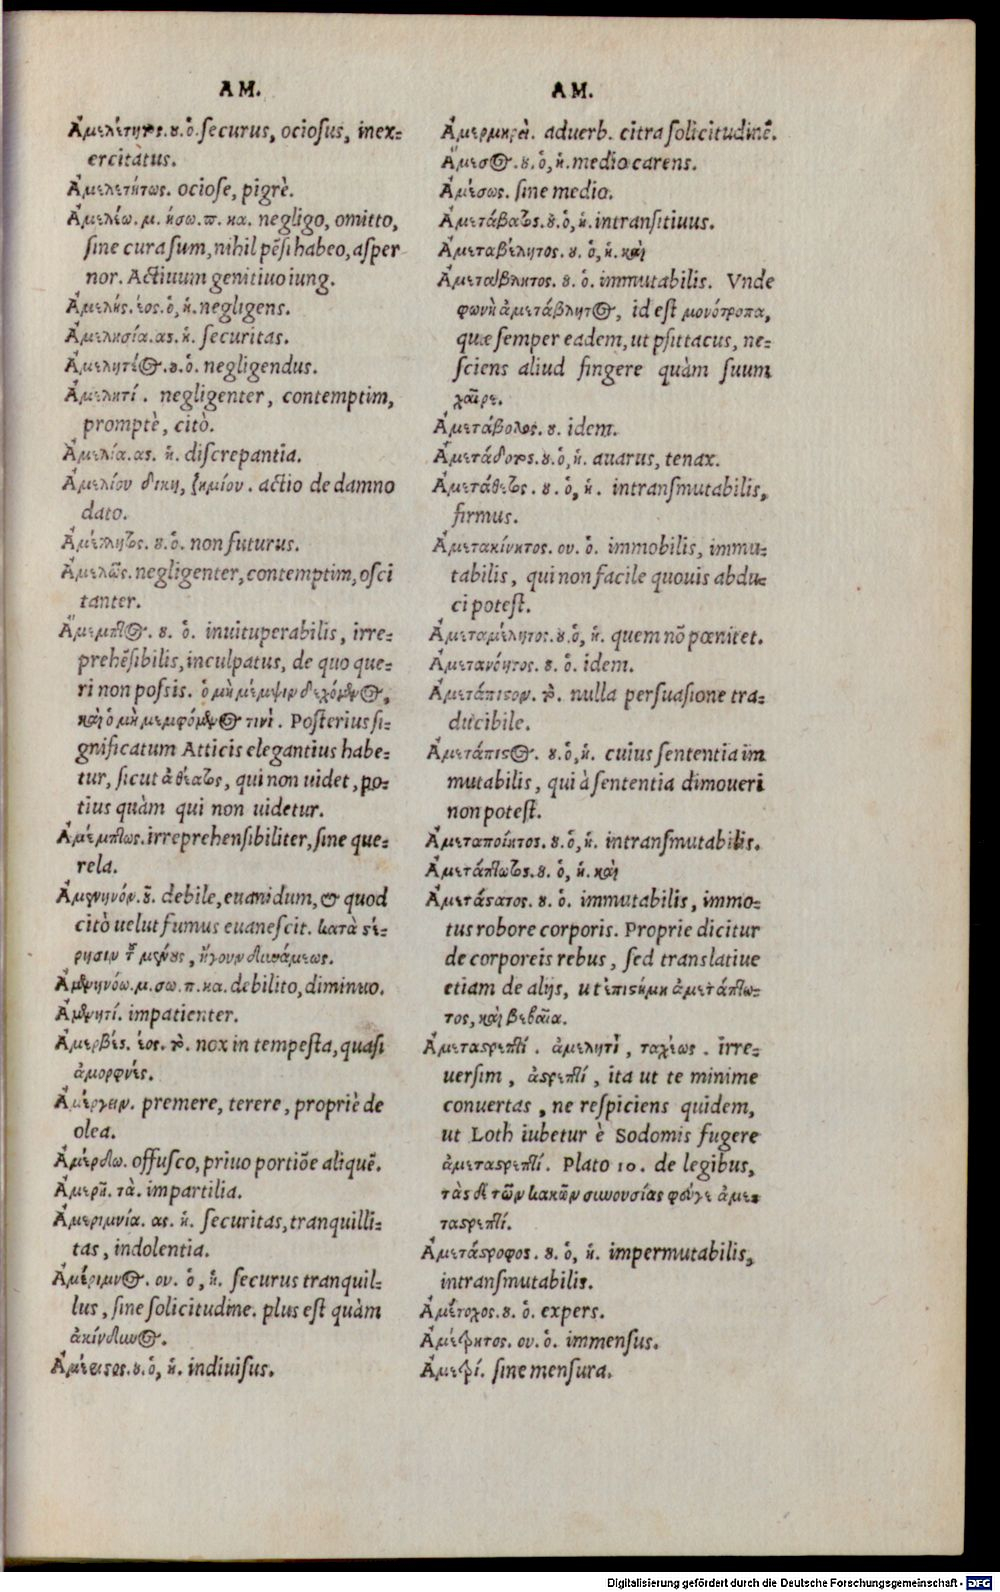 AM.
Ἀμελέτητος. ου. ὁ. securus, ociosus, inex-
ercitatus.
Ἀμελετήτως. ociose, pigrè.
Ἀμελέω. μ. ήσω. π. κα. negligo, omitto,
sine cura sum, nihil pēsi habeo, asper
nor. Actiuum genitiuo iung.
Ἀμελής. έος. ὁ, ἡ. negligens.
Ἀμελησία. ας. ἡ. securitas.
Ἀμελητέος. ου. ὁ. negligendus.
Ἀμελητί. negligenter, contemptim,
promptè, citò.
Ἀμελία. ας. ἡ. discrepantia.
Ἀμελίου δίκη, ζημίου. actio de damno
dato.
Ἀμέλλητος. ου. ὁ. non futurus.
Ἀμελῶς. negligenter, contemptim, osci
tanter.
Ἄμεμπτος. ου. ὁ. inuituperabilis, irre-
prehēsibilis, inculpatus, de quo que-
ri non possis. ὁ μὴ μέμψιν δεχόμενος,
καὶ ὁ μὴ μεμφόμενος τινί. Posterius si-
gnificatum Atticis elegantius habe-
tur, sicut ἀθέατος, qui non uidet, po-
tius quàm qui non uidetur.
Ἀμέμπτως. irreprehensibiliter, sine que-
rela.
Ἀμενηνόν. οῦ. debile, euanidum, & quod
citò uelut fumus euanescit. κατὰ στέ-
ρησιν τοῦ μένους, ἤγουν δυνάμεως.
Ἀμενηνόω. μ. σω. π. κα. debilito, diminuo.
Ἀμενητί. impatienter.
Ἀμερβές. έος. τό. nox in tempesta, quasi
ἀμορφνές.
Ἀμέργειν. premere, terere, propriè de
olea.
Ἀμέρδω. offusco, priuo portiōe aliquē.
Ἀμερῆ. τὰ. impartilia.
Ἀμεριμνία. ας. ἡ. securitas, tranquilli-
tas, indolentia.
Ἀμέριμνος. ου. ὁ, ἡ. securus tranquil-
lus, sine solicitudine. plus est quàm
ἀκίνδυνος.
Ἀμέριστος. ου. ὁ, ἡ. indiuisus.
AM.
Ἀμερμηρεί. aduerb. citra solicitudinē.
Ἄμεσος. ου. ὁ, ἡ. medio carens.
Ἀμέσως. sine medio.
Ἀμετάβατος. ου. ὁ, ἡ. intransitiuus.
Ἀμεταβέλητος. ου. ὁ, ἡ. καὶ
Ἀμετάβλητος. ου. ὁ. immutabilis. Vnde
φωνὴ ἀμετάβλητος, id est μονότροπα,
quæ semper eadem, ut psittacus, ne-
sciens aliud fingere quàm suum
χαῖρε.
Ἀμετάβολος. ου. idem.
Ἀμετάδοτος. ου. ὁ, ἡ. auarus, tenax.
Ἀμετάθετος. ου. ὁ, ἡ. intransmutabilis,
firmus.
Ἀμετακίνητος. ου. ὁ. immobilis, immu-
tabilis, qui non facile quouis abdu-
ci potest.
Ἀμεταμέλητος. ου. ὁ, ἡ. quem nō pœnitet.
Ἀμετανόητος. ου. ὁ. idem.
Ἀμετάπιστον. τό. nulla persuasione tra-
ducibile.
Ἀμετάπιστος. ου. ὁ, ἡ. cuius sententia im
mutabilis, qui à sententia dimoueri
non potest.
Ἀμεταποίητος. ου. ὁ, ἡ. intransmutabilis.
Ἀμετάπτωτος. ου. ὁ, ἡ. καὶ
Ἀμετάστατος. ου. ὁ. immutabilis, immo-
tus robore corporis. Proprie dicitur
de corporeis rebus, sed translatiue
etiam de alijs, ut ἐπιστήμη ἀμετάπτω-
τος, καὶ βεβαῖα.
Ἀμεταστρεπτί. ἀμελητὶ, ταχέως. irre-
uersim, ἀστρεπτί, ita ut te minime
conuertas, ne respiciens quidem,
ut Loth iubetur è Sodomis fugere
ἀμεταστρεπτί. Plato 10. de legibus,
τὰς δὲ τῶν κακῶν συνουσίας φεῦγε ἀμε-
ταστρεπτί.
Ἀμετάστροφος. ου. ὁ, ἡ. impermutabilis,
intransmutabilis.
Ἀμέτοχος. ου. ὁ. expers.
Ἀμέτρητος. ου. ὁ. immensus.
Ἀμετρί. sine mensura.
Digitalisierung gefördert durch die Deutsche Forschungsgemeinschaft - DFG